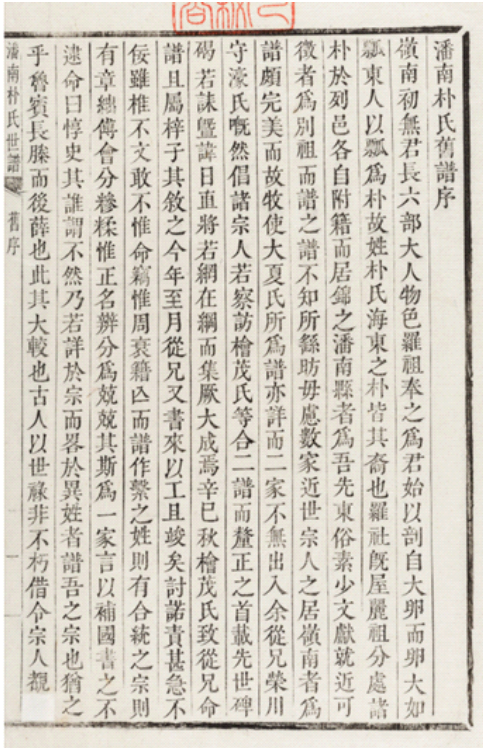 潘南朴氏舊譜序
嶺南初無君長六部大人物色羅祖奉之爲君始以剖自大卵而卵大如
瓢東人以瓢爲朴故姓朴氏海東之朴皆其裔也羅社旣屋麗祖分處諸
朴於列邑各自附籍而居錦之潘南縣者爲吾先東俗素少文獻就近可
徵者爲別祖而譜之譜不知所繇昉毋慮數家近世宗人之居嶺南者爲
譜頗完美而故牧使大夏氏所爲譜亦詳而二家不無出入余從兄榮川
守濠氏嘅然倡諸宗人若察訪檜茂氏等合二譜而釐正之首載先世碑
碣若誄曁諱日直將若網在綱而集厥大成焉辛巳秋檜茂氏致從兄命
譜且屬梓子其敘之今年至月從兄又書來以工且竣矣討諾責甚急不
佞雖椎不文敢不惟命竊惟周衰籍亾而譜作繫之姓則有合統之宗則
有章緫傅會分糝糅惟正名辨分爲兢兢其斯爲一家言以補國書之不
逮命曰惇史其誰謂不然乃若詳於宗而畧於異姓者譜吾之宗也猶之
乎魯賓長滕而後薛也此其大較也古人以世祿非不朽借令宗人覩
潘南朴氏世譜 舊序 一